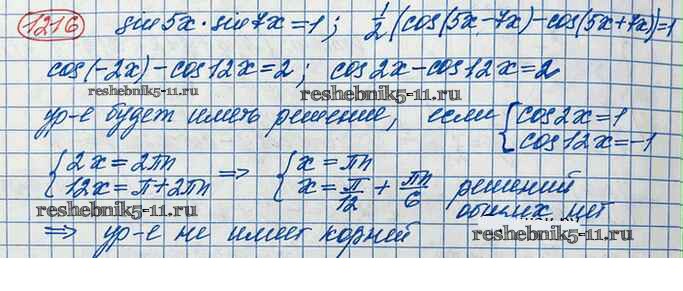 1216 sin5x·sin7x=1; 1/2(cos(5x-7x)-cos(5x+7x))=1
cos(-2x)-cos12x=2; cos2x-cos12x=2
reshebnik5-11.ru reshebnik5-11.ru
ур-е будет иметь решение, если {cos2x=1
cos12x=-1
{2x=2πn
12x=π+2πn => {x=πn
x=π/12+πn/6 решений
общих нет
reshebnik5-11.ru reshebnik5-11.ru
=> ур-е не имеет корней